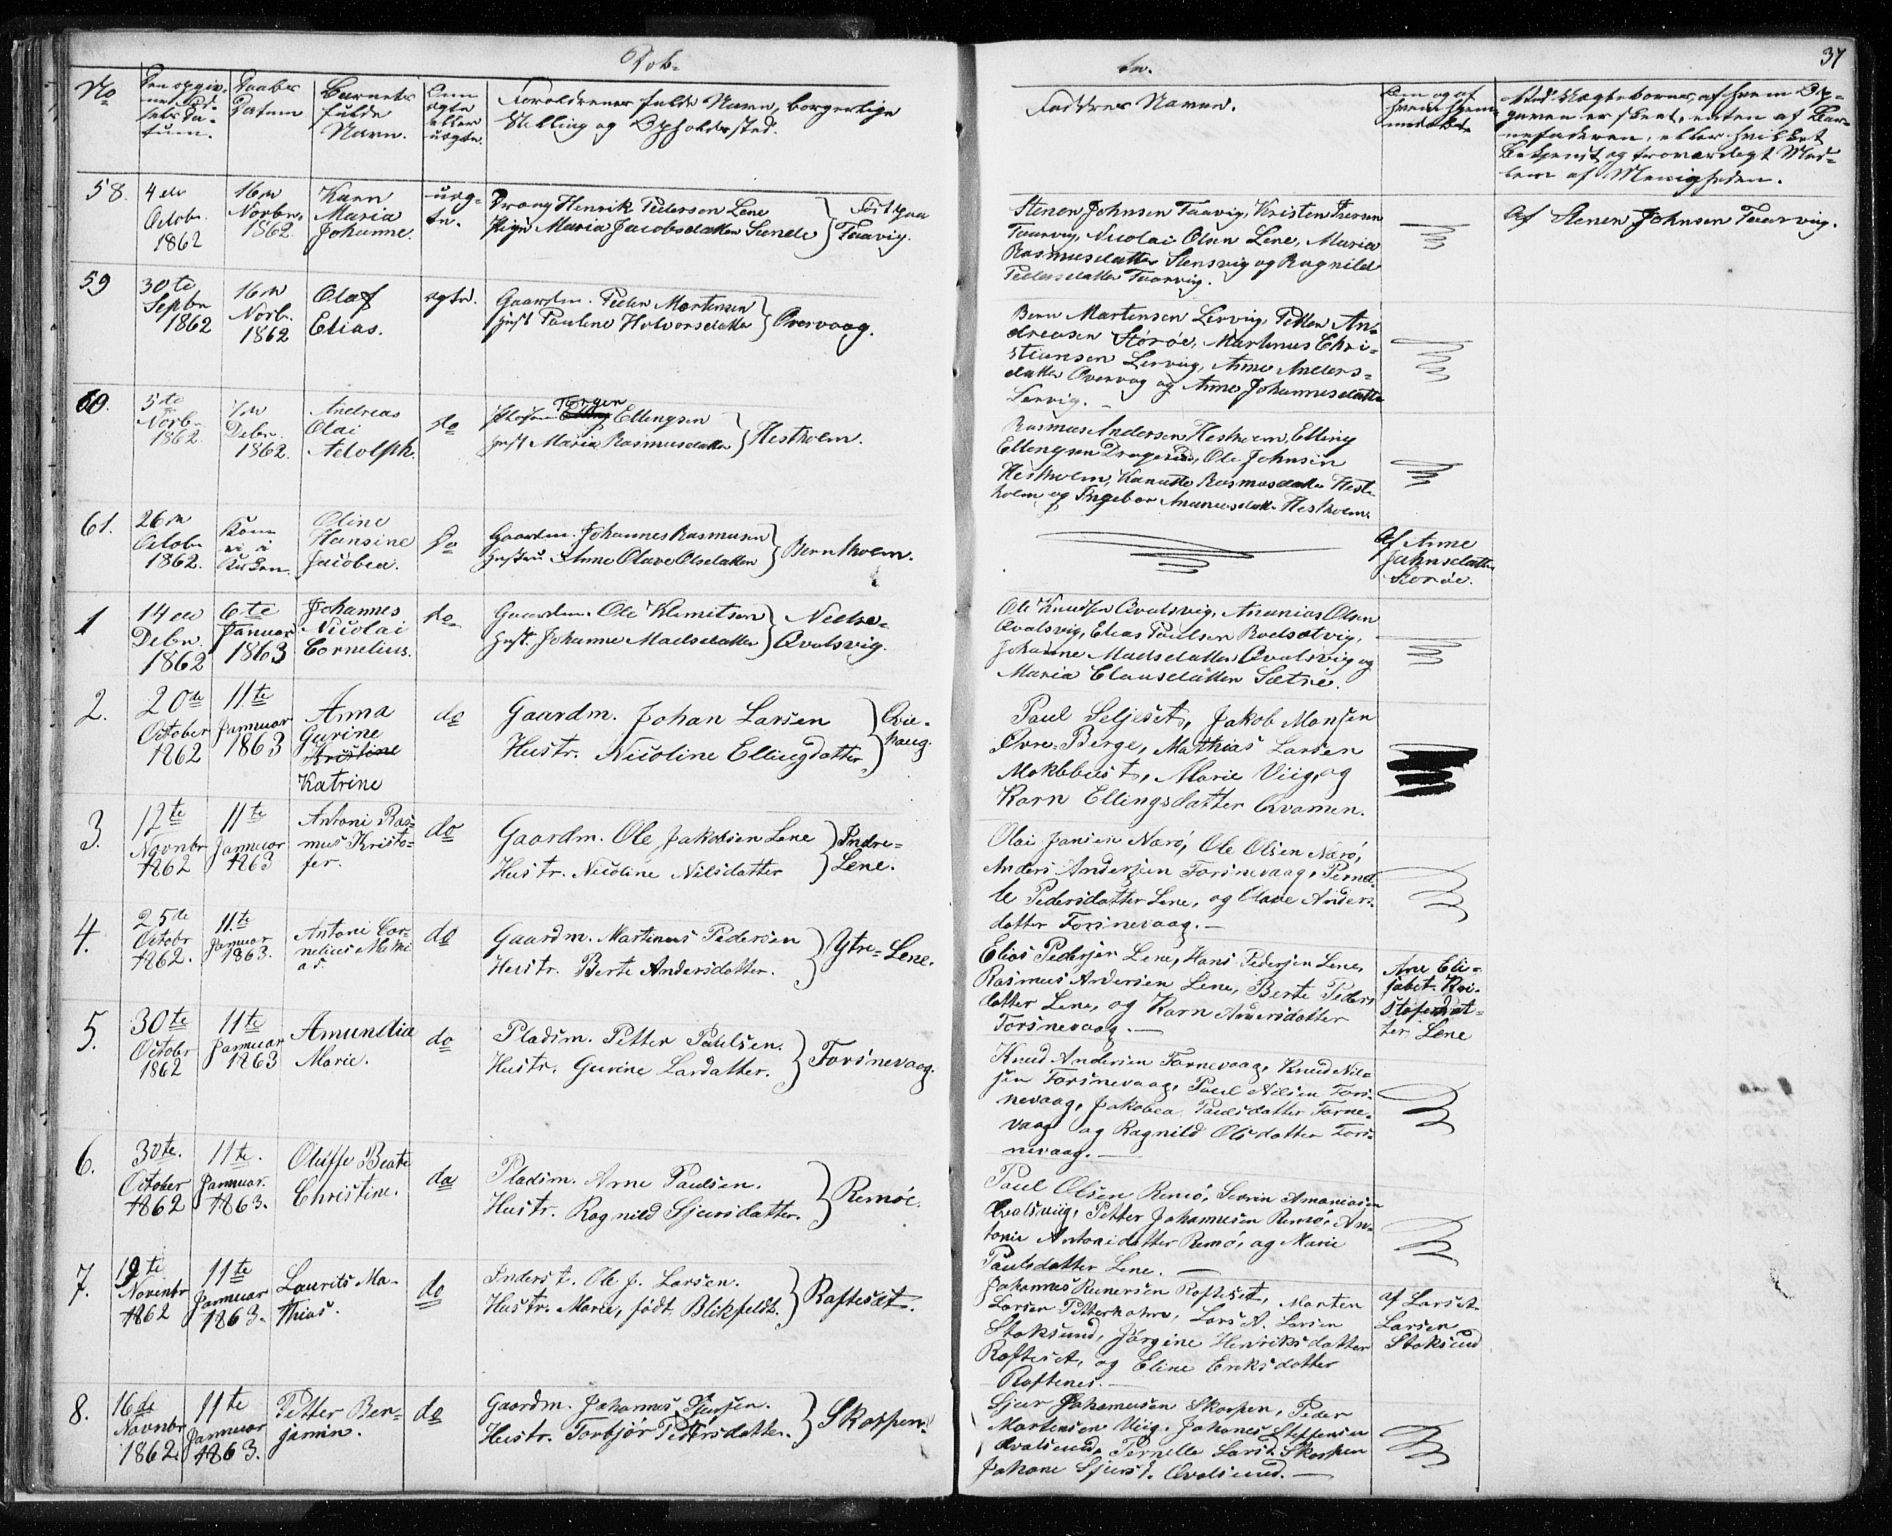 Døb-
te.
37
No
Den opgiv-
ne Fød-
sels Da-
tum.
Daabs
Datum
Barnets
fulde
Navn.
Om
ægte
eller
uægte.
Forældrenes fulde Navn, borgerlige
Stilling og Opholdssted.
Faddrenes Navne.
Om og af
hvem hjem-
medøbte
ved Uægtebørnene, af hvem Op-
gaven er skeet, enten af Bar-
nefaderen, eller hvilket
bekjendt og troværdigt Med-
lem af Menigheden.
58.
4de
Octobr.
1862
16de
Novbr.
1862.
Karn
Maria
Johanne.
uæg-
te.
Dreng Henrik Pedersen Lene
Pige Maria Jacobsdatter Sande
Taavig.
Stenen Johnsen Taavig, Kristen Iversen
Taarvig, Nicolai Olsen Lene, Maria
Rasmusdatter Stensvig og Ragnild
Pedersdatter Taarvig.
Af Stenen Johnsen Taarvig.
59
30te
Septbr
1862
16de
Novb.
1862
Olaf
Elias.
ægte.
Gaardm. Peder Mortensen
Hust Pauline Halvorsdatter
Overvaag.
Bern Martensen Lervig, Petter An-
dreasen Storøe, Martinus Chri-
stiansen Lervig, Anne Anders-
datter Overvag og Anne Johannesdatter
Lervig.
60.
5te
Novb.
1862
7de
Debr.
1862.
Andreas
Olai
Adolph.
do
Torgen
Elling Ellingsen
Hust Maria Rasmusdatter
Hestholm.
Rasmus Andersen Hestholm, Elling
Ellengsen Dragesund, Ole Johnsen
Hestholm, Kanutte Rasmusdatter Hest-
holm og Ingebor Ananiasdatter Hestholm.
61.
26de
Octob.
1862.
Kom
ei i
Kirken.
Oline
Hansine
Jacobea.
do
Gaardm. Johannes Rasmusen
Hustru Anne Olave Olsdatter
Bernholm.
Af Anne
Jahnsdatter
Storøe.
1
14de
Debr.
1862
6te
Januar
1863
Johannes
Nicolai
Cornelius.
do
Gaardm. Ole Klemitsen
Hust. Johanne Madsdatter
Nedre-
Qvalsvig.
Ole Knudsen Qvalsvig, Ananias Olsen
Qvalsvig, Elias Paulsen Rodsætvig,
Johanne Madsdatter Qvalsvig og
Maria Clausdatter Sætre.
2.
20de
October
1862
11te
Januar
1863
Anna
Gurine
Kristine
Katrine
do
Gaardm. Johan Larsen
Hustr. Nicoline Ellingdatter
Qvie-
haug.
Paul Seljeset, Jakob Monsen
Øvre-Berge, Mathias Larsen
Moklebust, Marie Viig, og
Karn Ellingsdatter Qvamen.
3.
12te
Novnbr
1862
11te
Januar
1863
Antoni Ras-
mus Kristo-
fer.
do
Gaardm. Ole Jakobsen Lene
Hustr. Nicoline Nilsdatter
Indre-
Lene.
Olai Jansen Nærø, Ole Olsen Nærø,
Anders Andersen Forsnevaag, Pernel-
le Pedersdatter Lene, og Olave Anders-
datter Forsnevaag.—
4.
25de
Octobr
1862.
11te
Januar
1863.
Antoni Cor-
nelius Mathi-
as.
do
Gaardm. Martinus Pedersen
Hustr. Berte Andersdatter.
Ytre-Lene.
Elias Pedersen Lene, Hans Pedersen Lene,
Rasmus Andersen Lene, Berte Peders
datter Lene, og Karn Andersdatter
Forsnevaag.—
Ane Eli-
sabet Kri-
stofersdat-
ter Lene
5.
30te
Octobr
1862
11te
Januar
1863
Amundia
Marie.
do
Pladsm. Petter Paulsen.
Hustr. Gurine Larsdatter.
Forsnevaag.
Knud Andersen Farnevaag, Knud Nil-
sen Forsnevaag, Paul Nilsen Fors-
nevaag, Jakobea Paulsdatter Farne-
vaag og Ragnild Olsdatter Fors-
nevaag.—
6.
30te.
October
1862
11te.
Januar.
1863.
Oluffe Beate
Christine.
do
Pladsm. Arne Paulsen.
Hustr. Ragnild Sjursdatter.
Remøe.
Paul Olsen Remø, Severin Amaniasen
Qvalsviig, Petter Johannesen Remø, An-
tonie Antonidatter Remø, og Marie
Paulsdatter Lene.—
7.
19te
Novenbr
1862
11te
Januar
1863.
Laurits Ma-
thias.
do
Inderst. Ole J. Larsen.
Hustr. Marie, født Blikfeldt.
Raftesæt.
Johannes Reinersen Raftesæt, Morten
Larsen Petterholm, Lars A. Larsen
Stoksund, Jørgine Henriksdatter
Raftesæt, og Eline Eriksdatter
Raftenes.—
af Lars A.
Larsen
Stoksund
8.
16de
Novnbr
1862.
11te
Januar
1863.
Petter Ben-
jamin.
do
Gaardm. Johannes Sjursen.
Hustr. Torbjør Pedersdatter.
Skorpen.
Sjur Johannesen Skorpen, Peder
Martensen Viig, Johanes Steffensen
Qvalsund, Pernelle Larsd. Skorpen
Johane Sjursd. Qvalsund.—